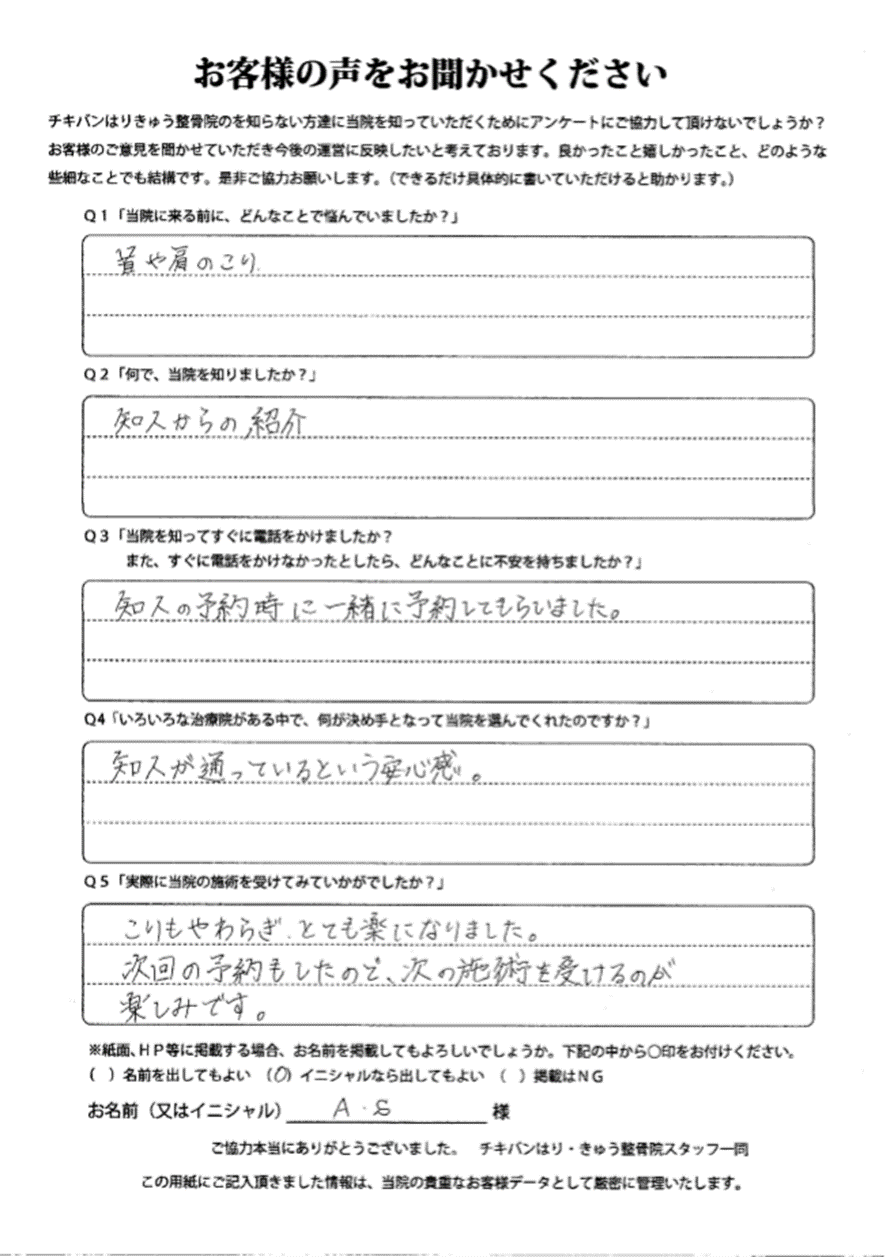 お客様の声をお聞かせください
チキバンはりきゅう整骨院のを知らない方達に当院を知っていただくためにアンケートにご協力して頂けないでしょうか？
お客様のご意見を聞かせていただき今後の運営に反映したいと考えております。良かったこと嬉しかったこと、どのような
些細なことでも結構です。是非ご協力お願いします。（できるだけ具体的に書いていただけると助かります。）
Ｑ１「当院に来る前に、どんなことで悩んでいましたか？」
や肩のこり
Ｑ２「何で、当院を知りましたか？」
知人からの紹介
Ｑ３「当院を知ってすぐに電話をかけましたか？
また、すぐに電話をかけなかったとしたら、どんなことに不安を持ちましたか？」
知人の予約時に一緒に予約してもらいました。
Ｑ4「いろいろな治療院がある中で、何が決め手となって当院を選んでくれたのですか？」
知人が通っているという安心感。
Ｑ５「実際に当院の施術を受けてみていかがでしたか？」
こりもやわらぎ、とても楽になりました。
次回の予約もしたので、次の施術を受けるのが
楽しみです。
※紙面、ＨＰ等に掲載する場合、お名前を掲載してもよろしいでしょうか。下記の中から〇印をお付けください。
（ ）名前を出してもよい （〇）イニシャルなら出してもよい （ ）掲載はＮＧ
お名前（又はイニシャル） A・S 様
ご協力本当にありがとうございました。 チキバンはり・きゅう整骨院スタッフ一同
この用紙にご記入頂きました情報は、当院の貴重なお客様データとして厳密に管理いたします。